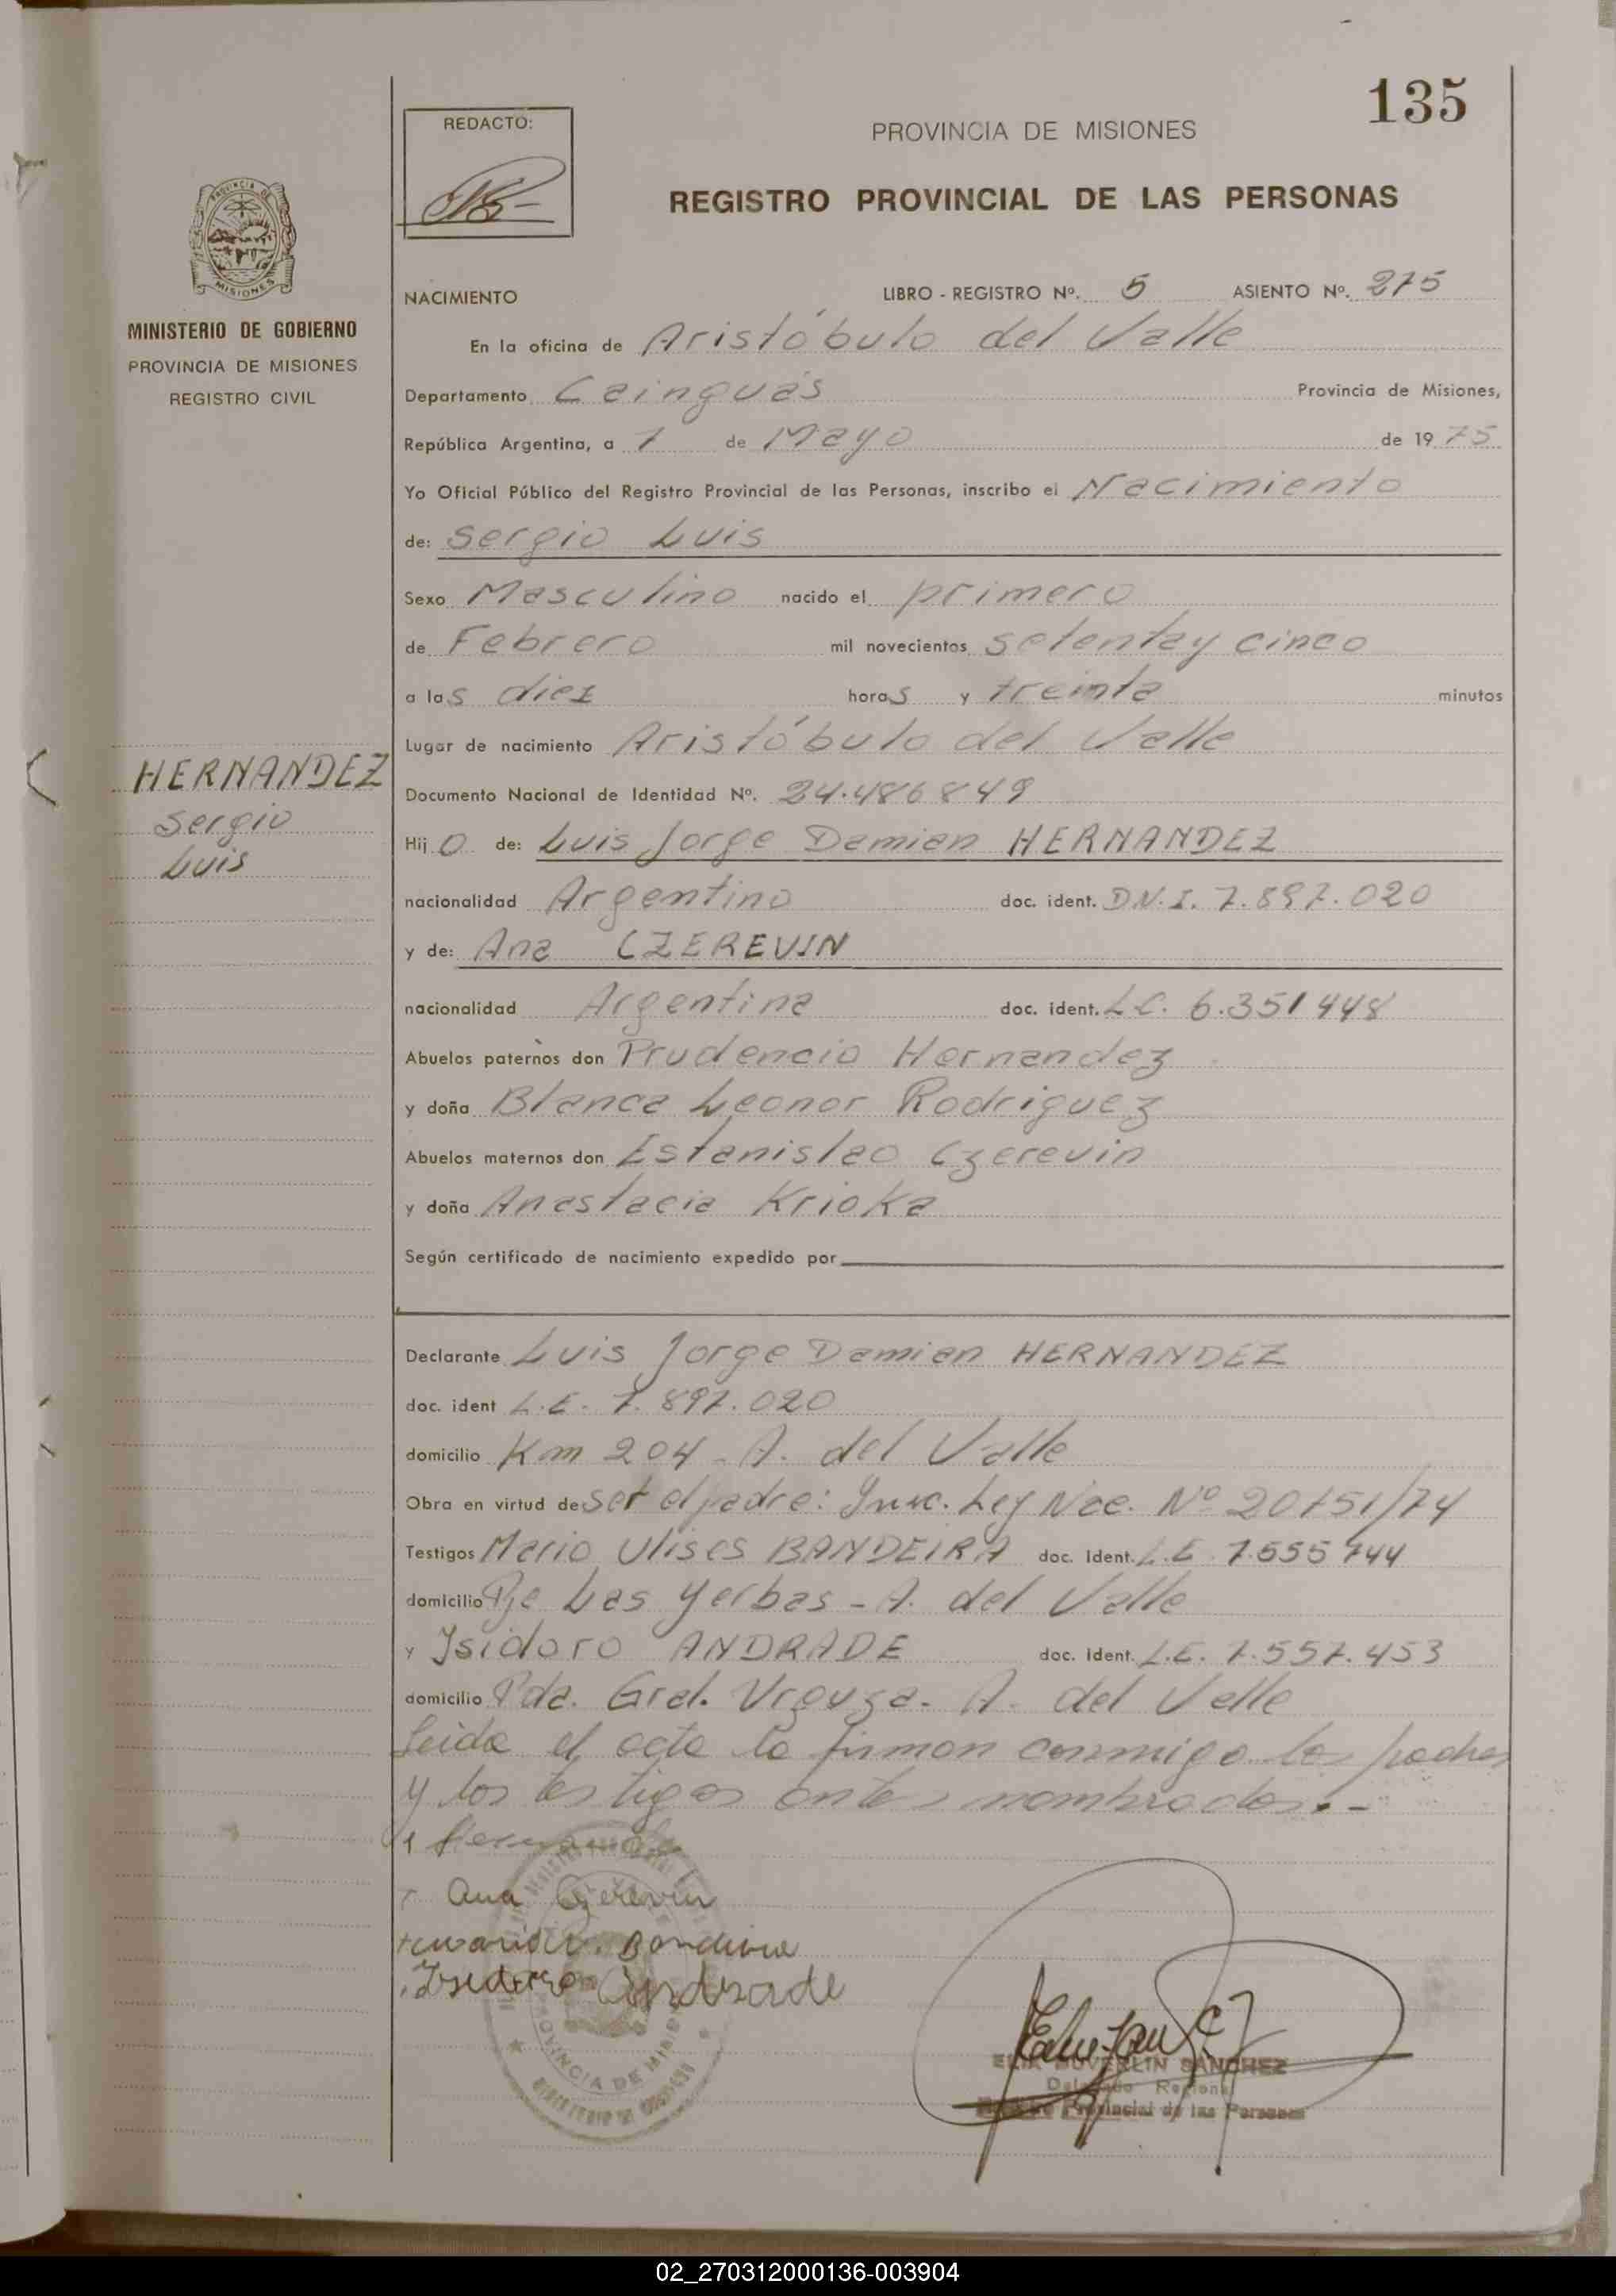 135
REDACTO:
PROVINCIA DE MISIONES
REGISTRO PROVINCIAL DE LAS PERSONAS
MISIONES
MINISTERIO DE GOBIERNO
PROVINCIA DE MISIONES
REGISTRO CIVIL
NACIMIENTO LIBRO - REGISTRO Nº. 5 ASIENTO Nº. 275
En la oficina de Aristóbulo del Valle
Departamento Cainguás Provincia de Misiones,
República Argentina, a 7 de Mayo de 1975
Yo Oficial Público del Registro Provincial de las Personas, inscribo el Nacimiento
de: Sergio Luis
Sexo Masculino nacido el primero
de Febrero mil novecientos setenta y cinco
a las diez horas y treinta minutos
Lugar de nacimiento Aristóbulo del Valle
HERNANDEZ
Sergio
Luis
Documento Nacional de Identidad Nº. 24.486849
Hijo de: Luis Jorge Damian HERNANDEZ
nacionalidad Argentino doc. ident. D.N.I. 7.897.020
y de: Ana CZEREVIN
nacionalidad Argentina doc. ident. L.C. 6.351448
Abuelos paternos don Prudencio Hernandez
y doña Blanca Leonor Rodriguez
Abuelos maternos don Estanislao Czerevin
y doña Anastacia Krioka
Según certificado de nacimiento expedido por
Declarante Luis Jorge Damian HERNANDEZ
doc. ident L.E. 7.897.020
domicilio Km 204 - A. del Valle
Obra en virtud de ser el padre: Insc. Ley Nac. Nº 20751/74
Testigos Mario Ulises BANDEIRA doc. Ident. L.E. 7.555744
domicilio Pje Las Yerbas - A. del Valle
y Isidoro ANDRADE doc. Ident. L.E. 7.557.453
domicilio Pda. Gral. Urquza - A. del Valle
Leida el acta la firman conmigo los padres
y los testigos antes nombrados.-
Ana Czerevin
Isidoro Andrade
PROVINCIA DE MISIONES
DUVERLIN SANCHEZ
Delegado Regional
Provincial de las Personas
02_270312000136-003904